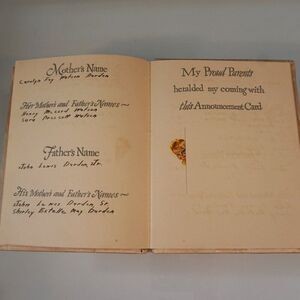 Mother's Name
Carolyn Fay Watson Darden
Her Mother's and Father's Names ~
Henry McCord Watson
Sara Doscott Watson
Father's Name
John Lewis Darden, Jr.
His Mother's and Father's Names ~
John Lewis Darden, Sr.
Shirley Estelle May Darden
My Proud Parents
heralded my coming with
this Announcement Card